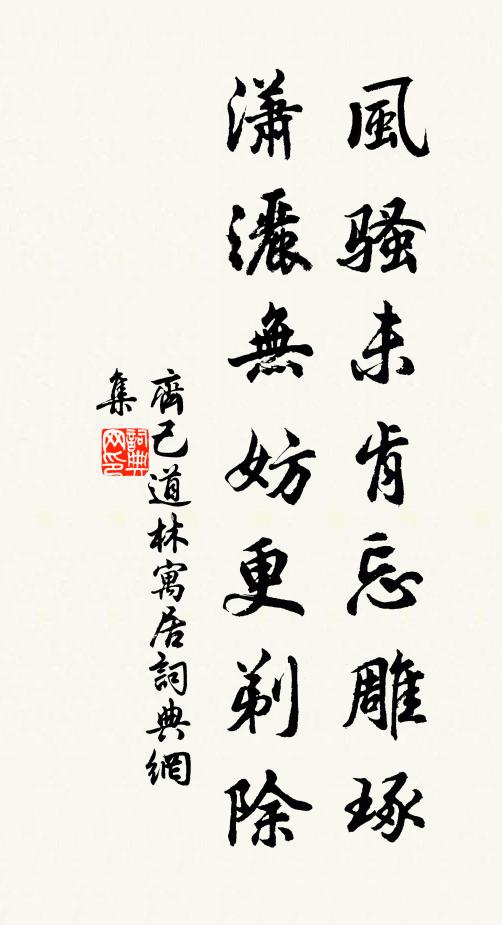 風騷未肯忘雕琢
瀟灑無妨更剃除
齊己道林寓居詞典網
集
詞典网印